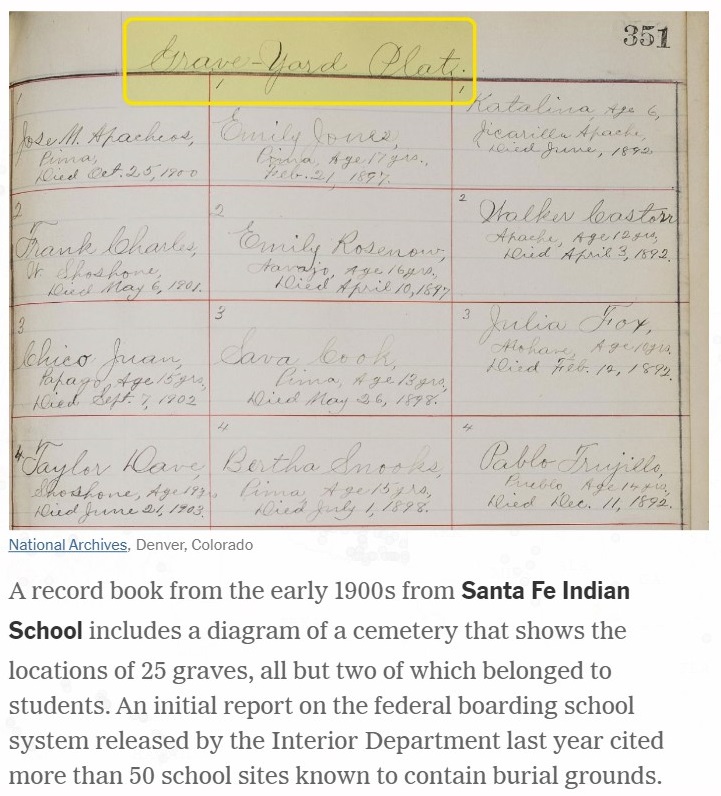 351
Grave-Yard Plat.
1
Jose M. Apacheos,
Pima,
Died Oct. 25, 1900
1
Emily Jones,
Pima, Age 17 yrs.,
Feb. 21, 1897.
1
Katalina, Age 6,
Jicarilla Apache,
Died June, 1892
2
Frank Charles,
W. Shoshone,
Died May 6, 1901.
2
Emily Rosenow,
Navajo, Age 16 yrs.,
Died April 10, 1897
2
Walker Castorr
Apache, Age 12 yrs,
Died April 3, 1892.
3
Chico Juan,
Papago, Age 15 yrs,
Died Sept. 7, 1902
3
Sava Cook,
Pima, Age 13 yrs,
Died May 26, 1898.
3
Julia Fox,
Mohave, Age yrs,
Died Feb. 12, 1892.
4
Taylor Dave,
Shoshone, Age 19
Died June 21, 1903.
4
Bertha Snooks,
Pima, Age 15 yrs,
Died July 1, 1898.
4
Pablo Trujillo,
Pueblo Age 14 yrs,
Died Dec. 11, 1892.
National Archives, Denver, Colorado
A record book from the early 1900s from Santa Fe Indian
School includes a diagram of a cemetery that shows the
locations of 25 graves, all but two of which belonged to
students. An initial report on the federal boarding school
system released by the Interior Department last year cited
more than 50 school sites known to contain burial grounds.